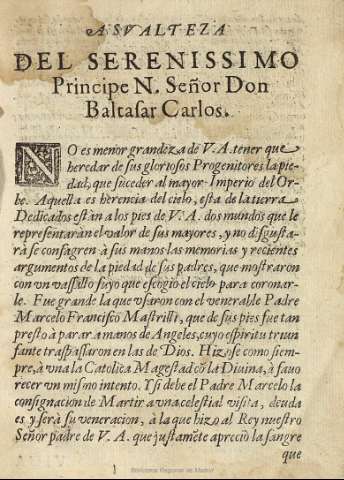 A SV ALTEZA
DEL SERENISSIMO
Principe N. Señor Don
Baltasar Carlos.
NO es menor grandeza de V. A. tener que
heredar de sus gloriosos Progenitores la pie-
dad, que suceder al mayor Imperio del Or-
be. Aquella es herencia del cielo, esta de la tierra
Dedicados están a los pies de V. A. dos mundos que le
representaràn el valor de sus mayores, y no disgusta-
rà se consagren à sus manos las memorias y recientes
argumentos de la piedad de sus padres, que mostraron
con un vassallo suyo que escogiò el cielo para coronar-
le. Fue grande la que usaron con el venerable Padre
Marcelo Francisco Mastrilli, que de sus pies fue tan
presto à parar a manos de Angeles, cuyo espiritu triun
fante traspassaron en las de Dios. Hizose como siem-
pre, à una la Catolica Magestad cõ la Divina, à favo
recer un mismo intento. Y si debe el Padre Marcelo la
consignacion de Martir a una celestial visita, deuda
es y serà su veneracion, à la que hizo al Rey nuestro
Señor padre de V. A. que justamẽte apreciò la sangre
que
Biblioteca Regional de Madrid